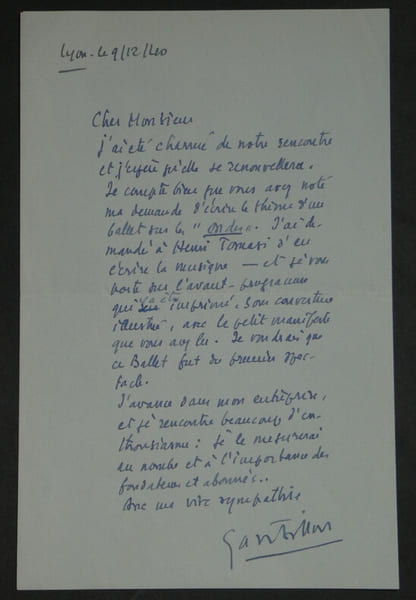 Lyon - le 9/12/40
Cher Monsieur
J'ai été charmé de notre rencontre
et j'espère qu'elle se renouvellera.
Je compte bien que vous avez noté
ma demande d'écrire le thème d'un
ballet sur les "ondes". J'ai de-
mandé à Henri Tomasi d'en
écrire la musique — et je vous
porte sur l'avant-programme
qui a été imprimé. Sous couverture
illustré, avec le petit manifeste
que vous avez lu. Je voudrais que
ce Ballet fut du premier spec-
tacle.
J'avance dans mon entreprise,
et je rencontre beaucoup d'en-
thousiasme : je le mesurerai
au nombre et à l'importance des
fondateurs et abonnés..
Avec ma vive sympathie
Gantillon